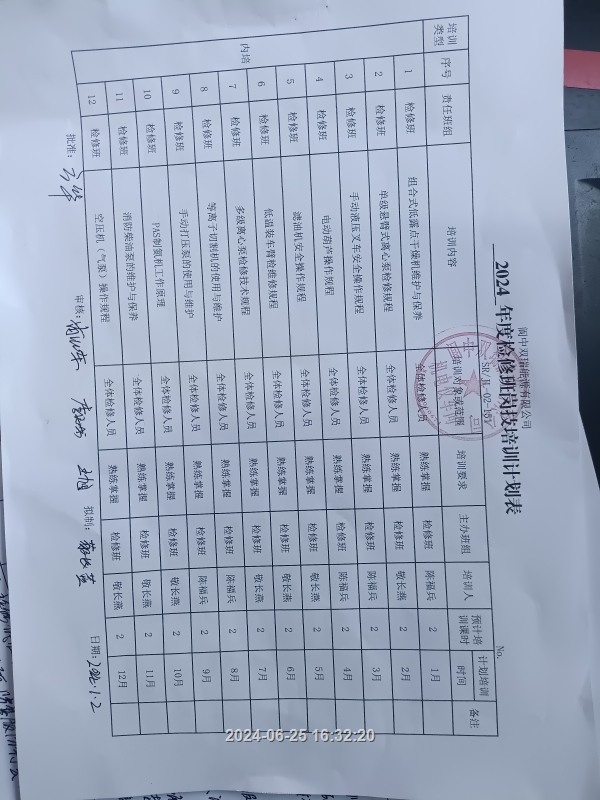 阆中双瑞能源有限公司
2024 年度检修班岗技培训计划表
No.
培训类型 序号 责任班组 培训内容 培训对象或范围 培训要求 主办班组 培训人 预计培训课时 计划培训时间 备注
内培
1 检修班 组合式低露点干燥机维护与保养 全体检修人员 熟练掌握 检修班 陈福兵 2 1月
2 检修班 单级悬臂式离心泵检修规程 全体检修人员 熟练掌握 检修班 敬长燕 2 2月
3 检修班 手动液压叉车安全操作规程 全体检修人员 熟练掌握 检修班 陈福兵 2 3月
4 检修班 电动葫芦操作规程 全体检修人员 熟练掌握 检修班 陈福兵 2 4月
5 检修班 滤油机安全操作规程 全体检修人员 熟练掌握 检修班 敬长燕 2 5月
6 检修班 低温装车臂检维修规程 全体检修人员 熟练掌握 检修班 敬长燕 2 6月
7 检修班 多级离心泵检修技术规程 全体检修人员 熟练掌握 检修班 敬长燕 2 7月
8 检修班 等离子切割机的使用与维护 全体检修人员 熟练掌握 检修班 陈福兵 2 8月
9 检修班 手动打压泵的使用与维护 全体检修人员 熟练掌握 检修班 陈福兵 2 9月
10 检修班 PAS制氮机工作原理 全体检修人员 熟练掌握 检修班 敬长燕 2 10月
11 检修班 消防柴油泵的维护与保养 全体检修人员 熟练掌握 检修班 敬长燕 2 11月
12 检修班 空压机（气泵）操作规程 全体检修人员 熟练掌握 检修班 敬长燕 2 12月
批准： 审核： 拟制：敬长燕 日期：
2024-06-25 16:32:20